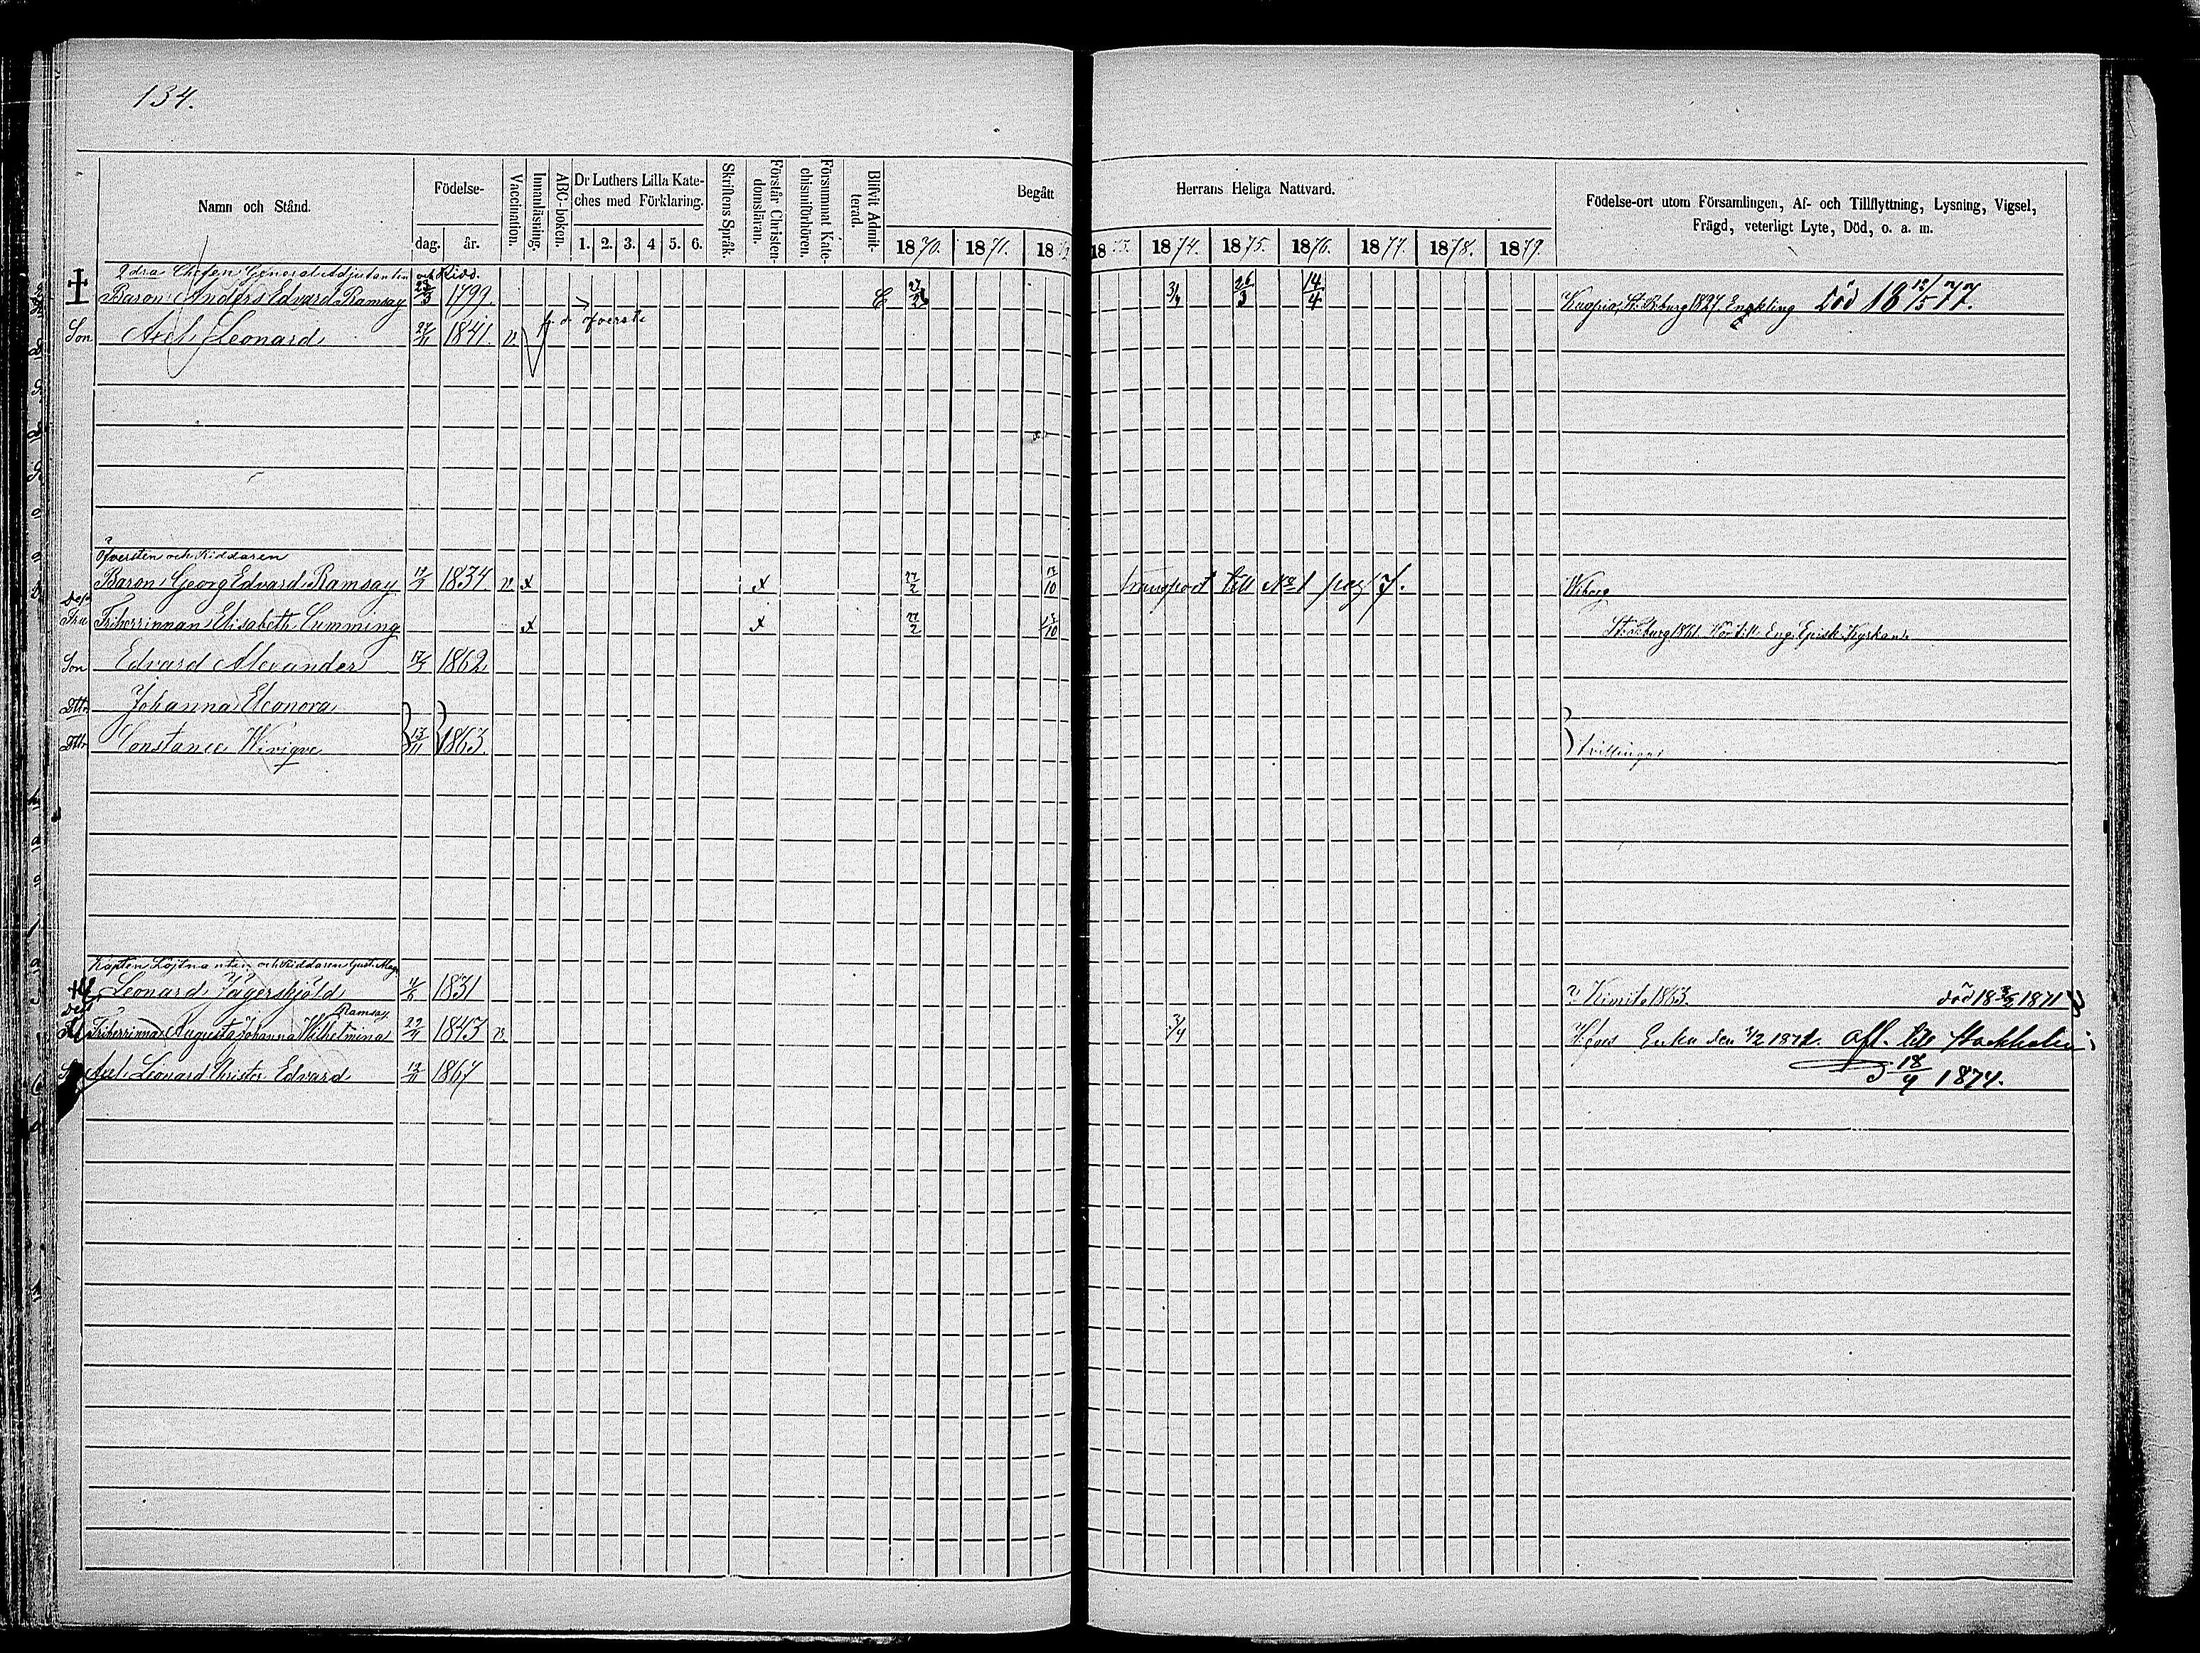 134.
Namn och Stånd. Födelse- dag. år. Vaccination. Innanläsning. ABC-boken. Dr Luthers Lilla Kateches med Förklaring. 1. 2. 3. 4 5. 6. Skriftens Språk. Förstår Christendomsläran. Försummat Katechismiförhören. Blifvit Admitterad. Begått Herrans Heliga Nattvard. 1870. 1871. 18 1874. 1875. 1876. 1877. 1878. 1879. Födelse-ort utom Församlingen, Af- och Tillflyttning, Lysning, Vigsel, Frägd, veterligt Lyte, Död, o. a. m.
Chefen Generaladjutanten och Ridd.
Baron Anders Edvard Ramsay 23/3 1799. C 27/2 3/4 26/3 14/4 1827. Enkling död 18 12/5 77.
f. d. öfverste
Son Axel Leonard 27/11 1841. v.
Öfversten och Riddaren
Baron Georg Edvard Ramsay 1834. v x x 27/2 17/10 transport till No 1 pag 7. Wiborg
Friherrinnan Elisabeth Cumming x x 27/2 17/10 1861. Eng. Episk. Kyrkan
Son Edvard Alexander 1862.
Dttr Johanna Eleonora
Dttr Constance Wivique 13/11 1863. tvillingar
Kapten Löjtnanten och Riddaren Gust. Mag.
Leonard Jägerskjöld 1831 Kimito 1863. död 18 1871
Ramsay
Friherrinnan Augusta Johanna Wilhelmina 29/4 1843 v. 3/4 Enka den 3/2 1871. afl. till Stockholm
Axel Leonard Christer Edvard 1867 18/4 1874.